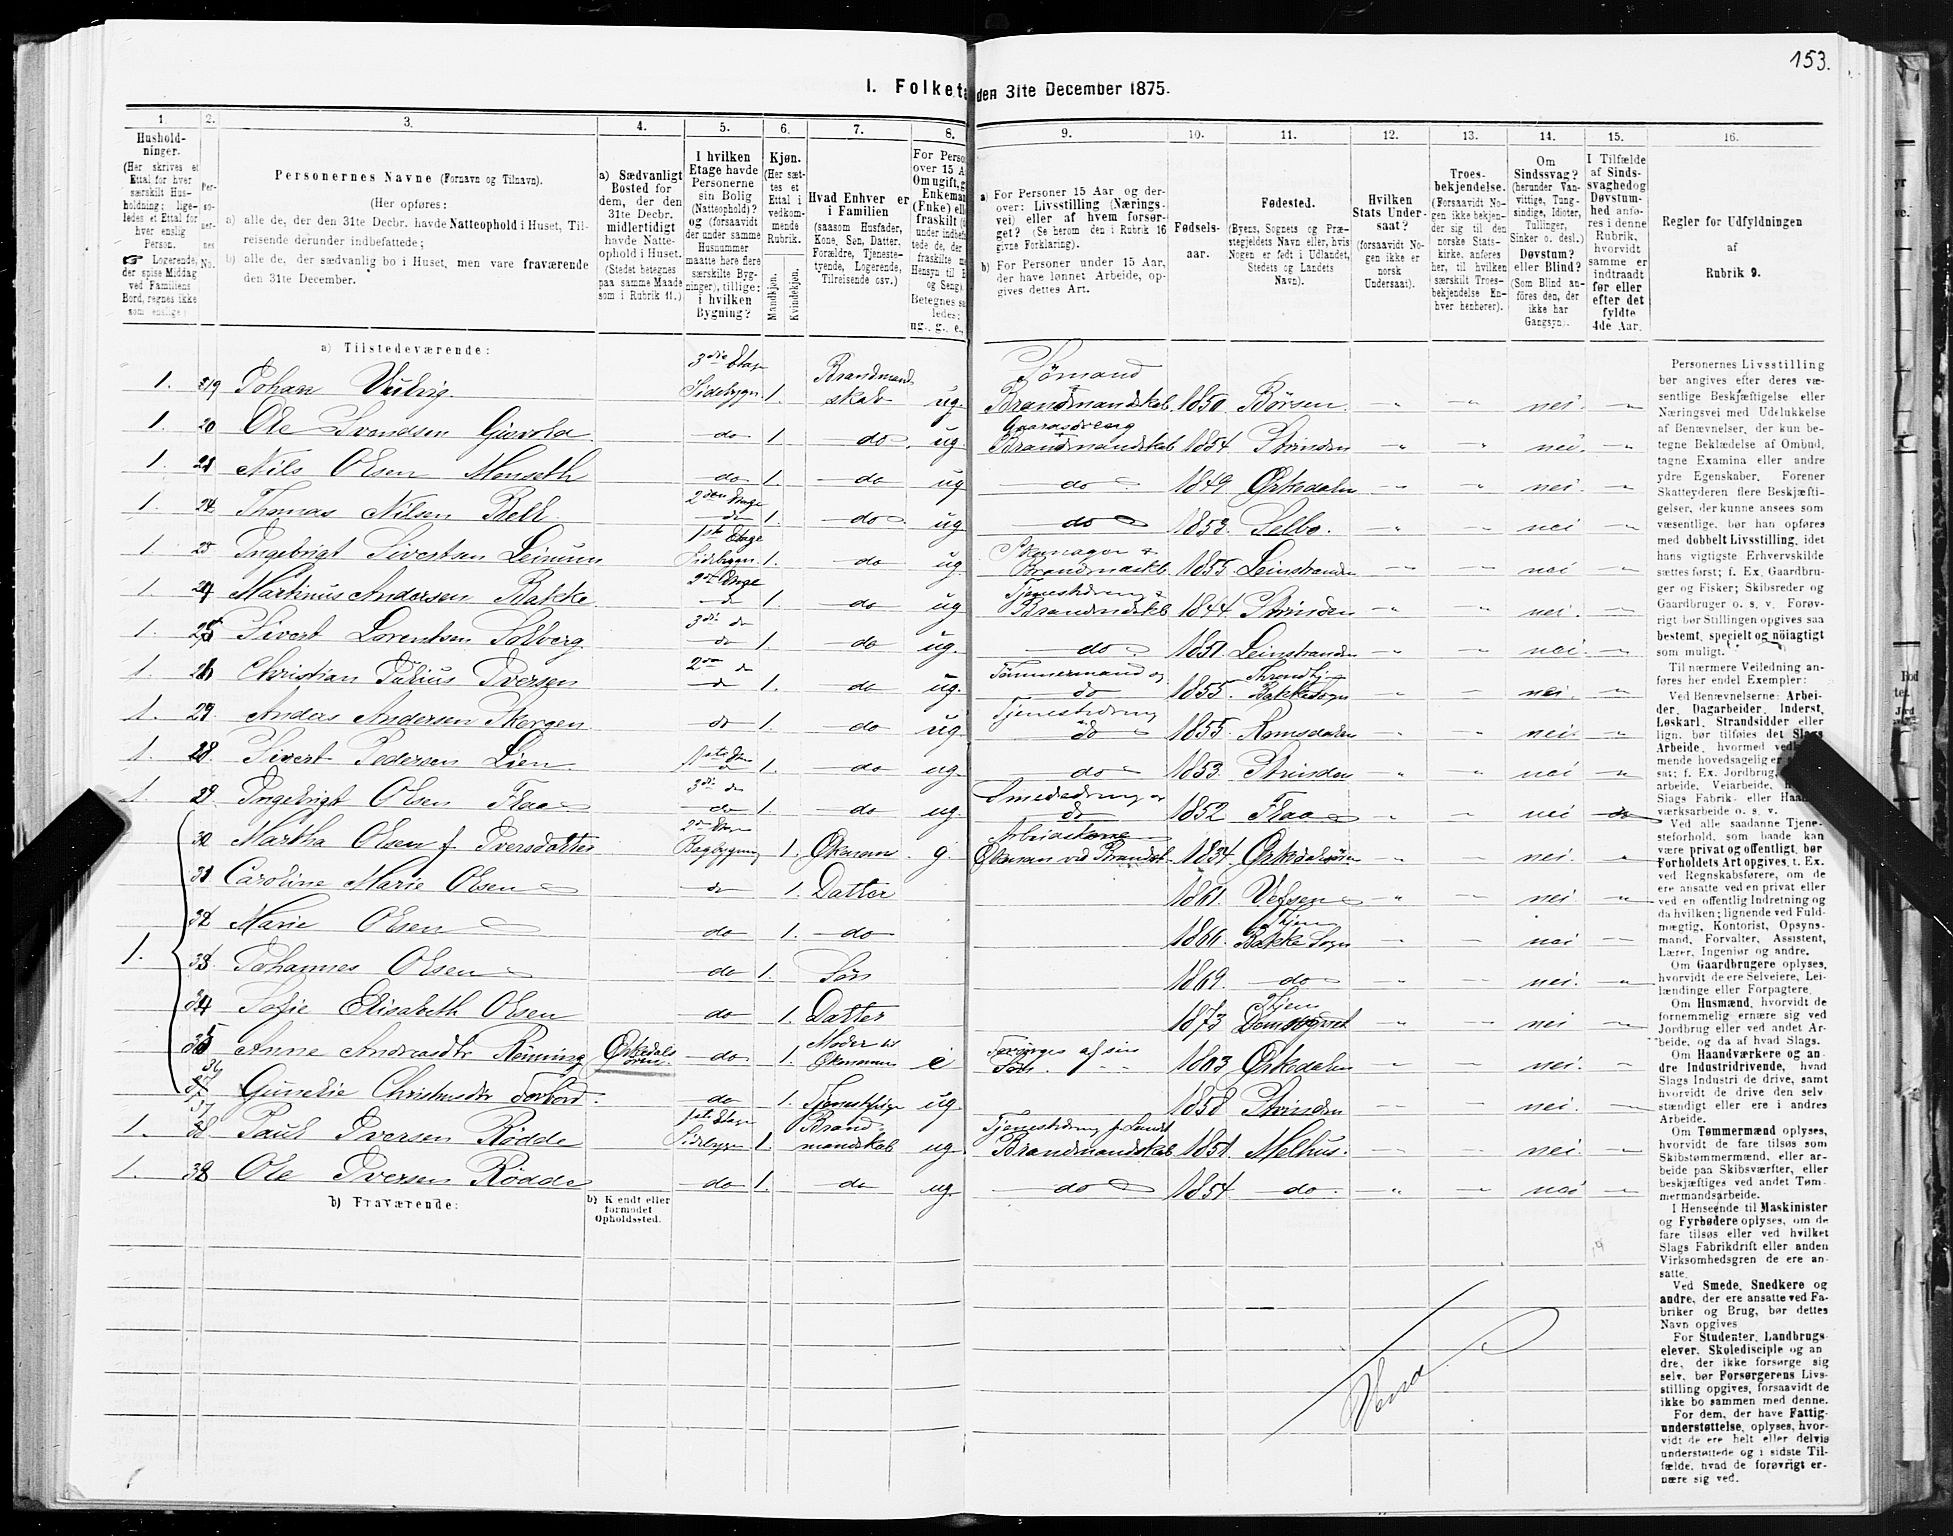 153.
I. Folketæ den 31te December 1875.
1 2. 3. 4. 5. 6. 7. 8. 9. 10. 11. 12. 13. 14. 15. 16.
Hushold-
ninger.
(Her skrives et
Ettal for hver
særskilt Hus-
holdning; lige-
ledes et Ettal for
hver enslig
Person.
☞ Logerende,
der spise Middag
ved Familiens
Bord, regnes ikke
som enslige.)
Per-
so-
ner-
nes
No.
Personernes Navne (Fornavn og Tilnavn).
(Her opføres:
a) alle de, der den 31te Decbr. havde Natteophold i Huset, Til-
reisende derunder indbefattede;
b) alle de, der sædvanlig bo i Huset, men vare fraværende
den 31te December.
a) Sædvanligt
Bosted for
dem, der den
31te Decbr.
midlertidigt
havde Natte-
ophold i Huset.
(Stedet betegnes
paa samme Maade
som i Rubrik 11.)
I hvilken
Etage havde
Personerne
sin Bolig
(Natteophold)?
og (forsaavidt
der under samme
Husnummer
maatte høre flere
særskilte Byg-
ninger), tillige:
i hvilken
Bygning?
Kjøn.
(Her sæt-
tes et
Ettal i
vedkom-
mende
Rubrik.
Mandkjøn.
Kvindekjøn.
Hvad Enhver er
i Familien
(saasom Husfader,
Kone, Søn, Datter,
Forældre, Tjeneste-
tyende, Logerende,
Tilreisende osv.)
For Perso
over 15 A
Om ugift, g
Enkeman
(Enke) ell
fraskilt (
under indbefat
tede de, der
fraskilte m
Hensyn til B
og Seng).
Betegnes sa
ledes:
ug., g., e.,
a) For Personer 15 Aar og der-
over: Livsstilling (Nærings-
vei) eller af hvem forsør-
get? (Se herom den i Rubrik 16
givne Forklaring).
b) For Personer under 15 Aar,
der have lønnet Arbeide, op-
gives dettes Art.
Fødsels-
aar.
Fødested.
(Byens, Sognets og Præ-
stegjeldets Navn eller, hvis
Nogen er født i Udlandet,
Stedets og Landets
Navn).
Hvilken
Stats Under-
saat?
(forsaavidt No-
gen ikke er
norsk
Undersaat).
Troes-
bekjendelse.
(Forsaavidt No-
gen ikke bekjen-
der sig til den
norske Stats-
kirke, anføres
her, til hvilken
særskilt Troes-
bekjendelse En-
hver henhører).
Om
Sindssvag?
(herunder Van-
vittige, Tung-
sindige, Idioter,
Tullinger,
Sinker o. desl.)
Døvstum?
eller Blind?
(Som Blind an-
føres den, der
ikke har
Gangsyn).
I Tilfælde
af Sinds-
svaghed og
Døvstum-
hed anfø-
res i denne
Rubrik,
hvorvidt
samme er
indtraadt
før eller
efter det
fyldte
4de Aar.
Regler for Udfyldningen
af
Rubrik 9.
a) Tilstedeværende:
1. 19 Johan 3die Etage Sidebygn. 1. Brandmandskab ug. Sømand & Brandmandskab. 1850. Børsen. nei
1. 20 Ole Svendsen Gjevold do 1. do ug. Gaardsdreng & Brandmandskab 1854 Strinden nei.
1. 21 Nils Olsen Monseth do 1. do ug do 1849 Ørkedalen nei.
1. Thomas Nilsen Bell 2den Etage do 1. do ug do 1853. Selbo. nei
1. Ingebrigt Sivertsen Leinum 1ste Etage Sidebygn. 1. do ug Skomager & Brandmaskb. 1855 Leinstranden nei
1. 24 Martinus Andersen Bakke 2den Etage do 1. do ug Tjenestedreng & Brandmdskb 1844 Strinden nei.
1. 25 Sivert Lorentsen Solberg 3die do do 1. do ug. do 1851. Leinstranden nei.
1. 26 Christian Julius Iversen 2den do do 1. do ug. Tømmermand og do 1855. Throndhj. Bakkesogn nei.
1. 27. Anders Andersen do 1. do ug Tjenestedreng & do 1855 Romsdalen nei.
1. 28. Sivert Pedersen Lien 1ste do do 1. do ug. do 1853. Strinden nei
1. 29 Ingebrigt Olsen Flaa 3die do do 1. do ug. Smededreng og do 1852 Flaa nei do
30 Martha Olsen f Iversdatter 2den Etage Bagbygning 1. Økonom g. Arbeidskone Økonom ved Brandst. 1834 Ørkedalsøren nei.
31 Caroline Marie Olsen do 1. Datter 1861. Vefsen nei.
32 Marie Olsen do 1. do 1866. Thjem Bakke Sogn nei
1. 33 Johannes Olsen do 1. Søn 1869 do nei.
34 Sofie Elisabeth Olsen do 1. Datter 1873 Thjem Domsognet nei
35 Anne Andreasdtr Rønning Ørkedalsøren do 1. Moder til Økonomen e Forsørges af sin Søn 1803 Ørkedalen nei.
36 Gunelie Christensdtr do 1. Tjenestepige ug 1858 Strinden nei.
1. 37 Paul Iversen Rødde 1st. Etage Sidebygn 1. Brandmandskab ug. Tjenestedreng f Landst Brandmandskab 1851. Melhus. nei.
1. 38 Ole Iversen Rødde do 1. do ug. do 1854 do. nei
b) Fraværende:
b) Kjendt eller
formodet
Opholdssted.
Personernes Livsstilling
bør angives efter deres væ-
sentlige Beskjæftigelse eller
Næringsvei med Udelukkelse
af Benævnelser, der kun be-
tegne Beklædelse af Ombud,
tagne Examina eller andre
ydre Egenskaber. Forener
Skatteyderen flere Beskjæfti-
gelser, der kunne ansees som
væsentlige, bør han opføres
med dobbelt Livsstilling, idet
hans vigtigste Erhvervskilde
sættes først; f. Ex. Gaardbru-
ger og Fisker; Skibsreder og
Gaardbruger o. s. v. Forøv-
rigt bør Stillingen opgives saa
bestemt, specielt og nøiagtigt
som muligt.
Til nærmere Veiledning an-
føres her endel Exempler:
Ved Benævnelserne: Arbei-
der, Dagarbeider, Inderst,
Løskarl, Strandsidder eller
lign. bør tilføies det Slags
Arbeide, hvormed ved
mende hovedsagelig er
sat; f. Ex. Jordbrug,
arbeide, Veiarbeide,
Slags Fabrik- eller Haa
værksarbeide o. s. v.
Ved alle saadanne Tjene-
steforhold, som baade kan
være privat og offentligt, bør
Forholdets Art opgives, t. Ex.
ved Regnskabsførere, om de
ere ansatte ved en privat eller
ved en offentlig Indretning og
da hvilken; lignende ved Fuld-
mægtig, Kontorist, Opsyns-
mand, Forvalter, Assistent,
Lærer, Ingeniør og andre.
Om Gaardbrugere oplyses,
hvorvidt de ere Selveiere, Lei-
lændinge eller Forpagtere.
Om Husmænd, hvorvidt de
fornemmelig ernære sig ved
Jordbrug eller ved andet Ar-
beide, og da af hvad Slags.
Om Haandværkere og an-
dre Industridrivende, hvad
Slags Industri de drive, samt
hvorvidt de drive den selv-
stændigt eller ere i andres
Arbeide.
Om Tømmermænd oplyses,
hvorvidt de fare tilsøs som
Skibstømmermænd, eller ar-
beide paa Skibsværfter, eller
beskjæftiges ved andet Tøm-
mermandsarbeide.
I Henseende til Maskinister
og Fyrbødere oplyses, om de
fare tilsøs eller ved hvilket
Slags Fabrikdrift eller anden
Virksomhedsgren de ere an-
satte.
Ved Smede, Snedkere og
andre, der ere ansatte ved Fa-
briker og Brug, bør dettes
Navn opgives
For Studenter, Landbrugs-
elever, Skoledisciple og an
dre, der ikke forsørge sig
selv, bør Forsørgerens Livs-
stilling opgives, forsaavidt de
ikke bo sammen med denne.
For dem, der have Fattig-
understøttelse, oplyses, hvor-
vidt de ere helt eller delvis
understøttede og i sidste Til-
fælde, hvad de forøvrigt er-
nære sig ved.